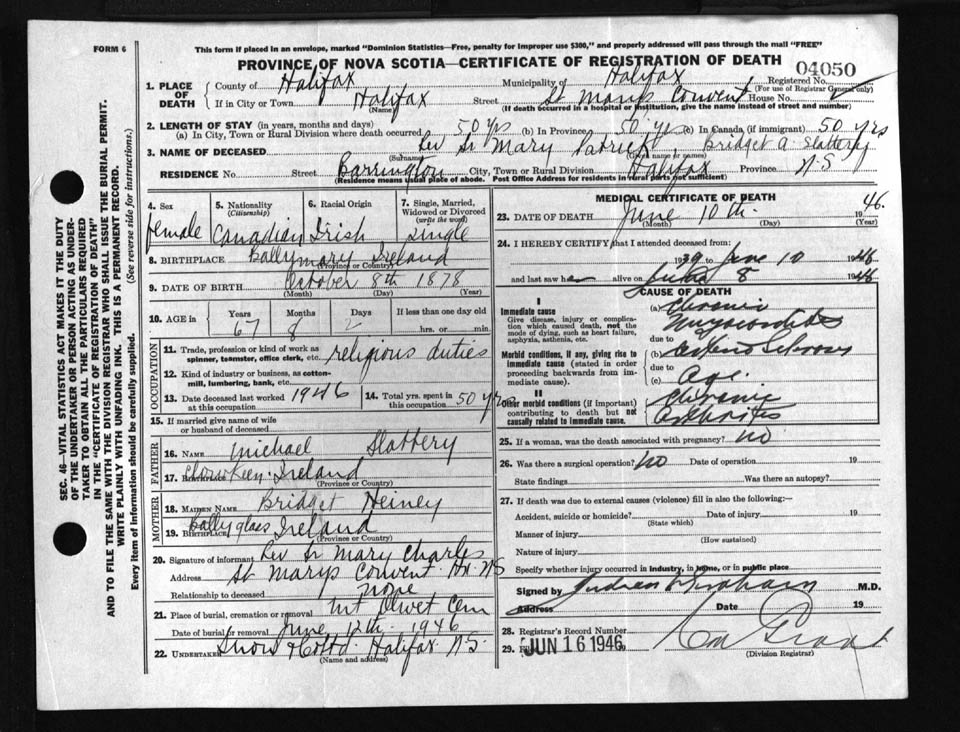 FORM 6
This form if placed in an envelope, marked "Dominion Statistics—Free, penalty for improper use $300," and properly addressed will pass through the mail "FREE"
PROVINCE OF NOVA SCOTIA—CERTIFICATE OF REGISTRATION OF DEATH
04050
SEC. 46—VITAL STATISTICS ACT MAKES IT THE DUTY
OF THE UNDERTAKER OR PERSON ACTING AS UNDER-
TAKER TO OBTAIN ALL THE PARTICULARS REQUIRED
IN THE "CERTIFICATE OF REGISTRATION OF DEATH"
AND TO FILE THE SAME WITH THE DIVISION REGISTRAR WHO SHALL ISSUE THE BURIAL PERMIT.
WRITE PLAINLY WITH UNFADING INK. THIS IS A PERMANENT RECORD.
Every item of information should be carefully supplied. (See reverse side for instructions.)
1. PLACE OF DEATH County of Halifax Municipality of Halifax Registered No.
(For use of Registrar General only)
If in City or Town Halifax Street St Marys Convent House No.
(Name) (If death occurred in a hospital or institution, give the name instead of street and number)
2. LENGTH OF STAY (in years, months and days)
(a) In City, Town or Rural Division where death occurred 50 yrs (b) In Province 50 yrs (c) In Canada (if immigrant) 50 yrs
3. NAME OF DECEASED Rev Sr Mary Patrick, Bridget A. Slattery
(Surname) (Given name or names)
RESIDENCE No. Street Barrington City, Town or Rural Division Halifax Province N-S
(Residence means usual place of abode. Post Office Address for residents in rural parts not sufficient)
4. Sex female
5. Nationality (Citizenship) Canadian
6. Racial Origin Irish
7. Single, Married, Widowed or Divorced (write the word) single
8. BIRTHPLACE Ballymary Ireland
(Province or Country)
9. DATE OF BIRTH October 8th 1878
(Month) (Day) (Year)
10. AGE in Years 67 Months 8 Days 2 If less than one day old hrs. or min.
OCCUPATION
11. Trade, profession or kind of work as spinner, teamster, office clerk, etc. religious duties
12. Kind of industry or business, as cotton-mill, lumbering, bank, etc.
13. Date deceased last worked at this occupation 1946
14. Total yrs. spent in this occupation 50 yrs
15. If married give name of wife or husband of deceased
FATHER
16. NAME Michael Slattery
17. BIRTHPLACE Ireland
(Province or Country)
MOTHER
18. MAIDEN NAME Bridget Heiney
19. BIRTHPLACE Ballyglass Ireland
(Province or Country)
20. Signature of informant Rev Sr Mary Charles
Address St Marys Convent Hx NS
Relationship to deceased none
21. Place of burial, cremation or removal Mt Olivet Cem
Date of burial or removal June 12th 1946
22. UNDERTAKER Snow & Co Ltd. Halifax N.S.
(Name and address)
MEDICAL CERTIFICATE OF DEATH
23. DATE OF DEATH June 10th 1946.
(Month) (Day) (Year)
24. I HEREBY CERTIFY that I attended deceased from:
1939 to June 10 1946
and last saw her alive on June 8 1946
CAUSE OF DEATH
I
Immediate cause
Give disease, injury or complication which caused death, not the mode of dying, such as heart failure, asphyxia, asthenia, etc.
(a) Chronic Myocarditis
due to
Morbid conditions, if any, giving rise to immediate cause (stated in order proceeding backwards from immediate cause).
(b) Arterio Sclerosis
due to
(c) Age.
II
Other morbid conditions (if important) contributing to death but not causally related to immediate cause.
Chronic Arthritis
25. If a woman, was the death associated with pregnancy? no
26. Was there a surgical operation? no Date of operation 19
State findings Was there an autopsy?
27. If death was due to external causes (violence) fill in also the following:—
Accident, suicide or homicide? Date of injury 19
(State which)
Manner of injury
(How sustained)
Nature of injury
Specify whether injury occurred in industry, in home, or in public place
Signed by Graham M.D.
Address Date 19
28. Registrar's Record Number
29. JUN 16 1946
(Division Registrar)